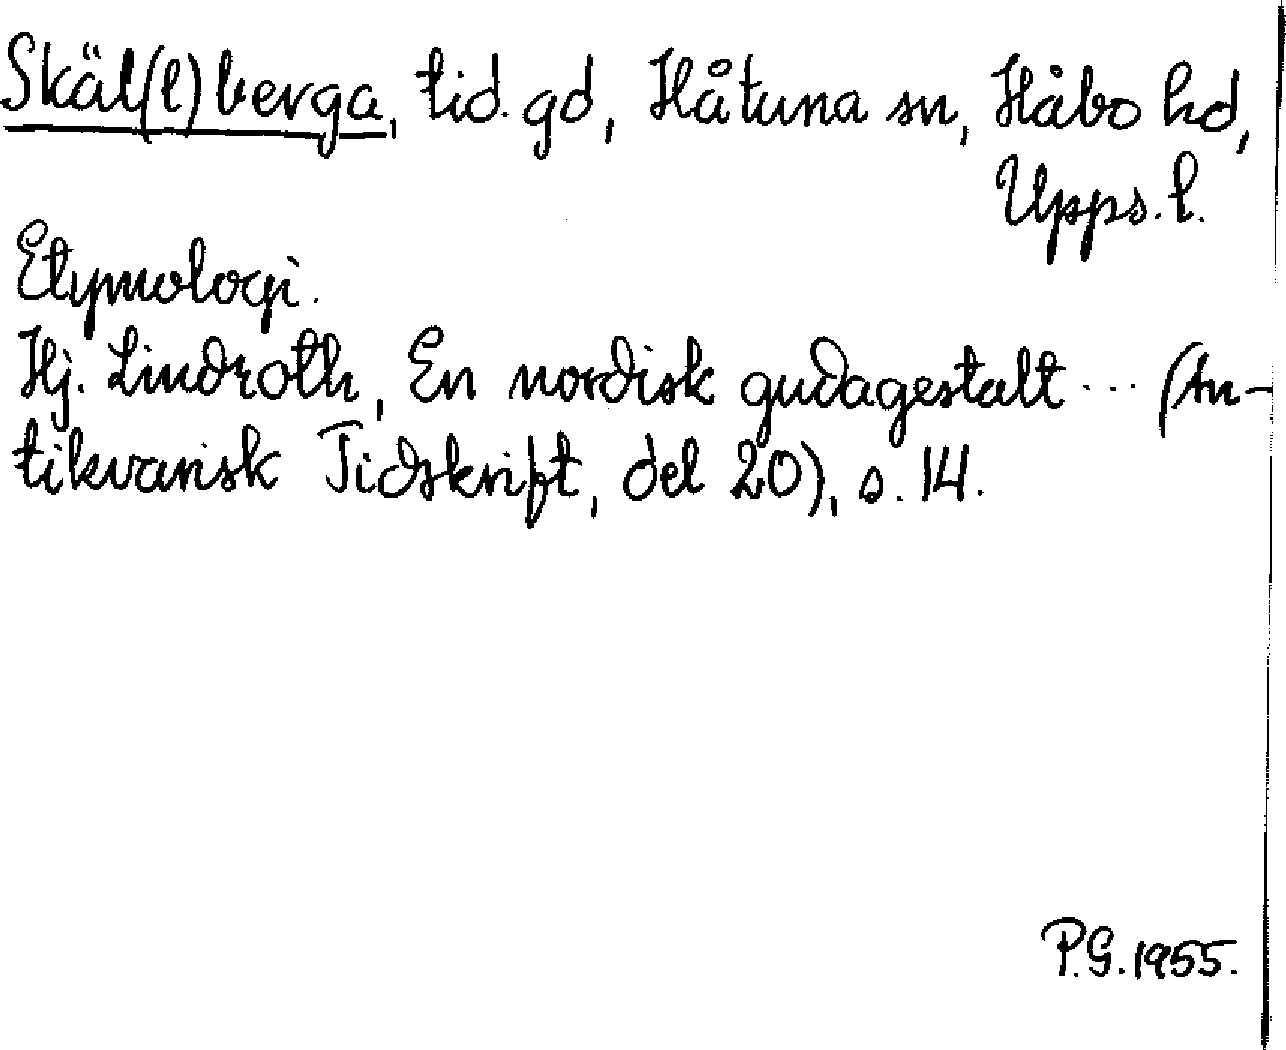 Skäl(l)berga, tid. gd, Håtuna sn, Håbo hd,
Upps. l.
Etymologi.
Hj. Lindroth, En nordisk gudagestalt ... (An-
tikvarisk Tidskrift, del 20), s. 14.
P.G. 1955.